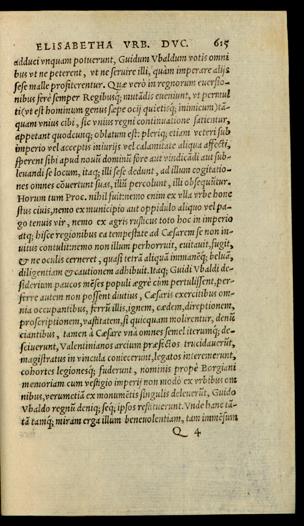 ELISABETHA VRB. DVC. 615
adduci vnquam potuerunt, Guidum Vbaldum votis omni
bus vt ne peterent, vt ne seruire illi, quàm imperare alijs
sese malle profiterentur. Quæ verò in regnorum euersio-
nibus ferè semper Regibusq; mutādis eueniunt, vt permul
ti (vt est hominum genus sæpe ocij quietisq; inimicum) tā-
quam vnius cibi, sic vnius regni continuatione satientur,
appetant quodcunq; oblatum est: pleriq; etiam veteri sub
imperio vel acceptis iniurijs vel calamitate aliqua affecti,
sperent sibi apud nouū dominū fore aut vindicādi aut sub-
leuandi se locum, itaq; illi sese dedunt, ad illum cogitatio-
nes omnes cōuertunt suas, illū percolunt, illi obsequūtur.
Horum tum Proc. nihil fuit: nemo enim ex illa vrbe hone
stus ciuis, nemo ex municipio aut oppidulo aliquo vel pa-
go tenuis vir, nemo ex agris rusticus toto hoc in imperio
atq; hisce regionibus ea tempestate ad Cæsarem se non in-
uitus contulit: nemo non illum perhorruit, euitauit, fugit,
& ne oculis cerneret, quasi tetrā aliquā immanēq; beluā,
diligentiam & cautionem adhibuit. Itaq; Guidi Vbaldi de-
siderium paucos mēses populi ægrè cum pertulissent, per-
ferre autem non possent diutius, Cæsaris exercitibus om-
nia occupantibus, ferrū illis, ignem, cædem, direptionem,
proscriptionem, vastitatem, si quicquam molirentur, denū
ciantibus, tamen à Cæsare vnà omnes semel iterumq; de-
sciuerunt, Valentinianos arcium præfectos trucidauerūt,
magistratus in vincula coniecerunt, legatos interemerunt,
cohortes legionesq; fuderunt, nominis propè Borgiani
memoriam cum vestigio imperij non modò ex vrbibus om
nibus, verumetiā ex monumētis singulis deleuerūt, Guido
Vbaldo regnū deniq; seq; ipsos restituerunt. Vnde hanc tā-
tā tamq; miram erga illum beneuolentiam, tam immēsum
Q 4